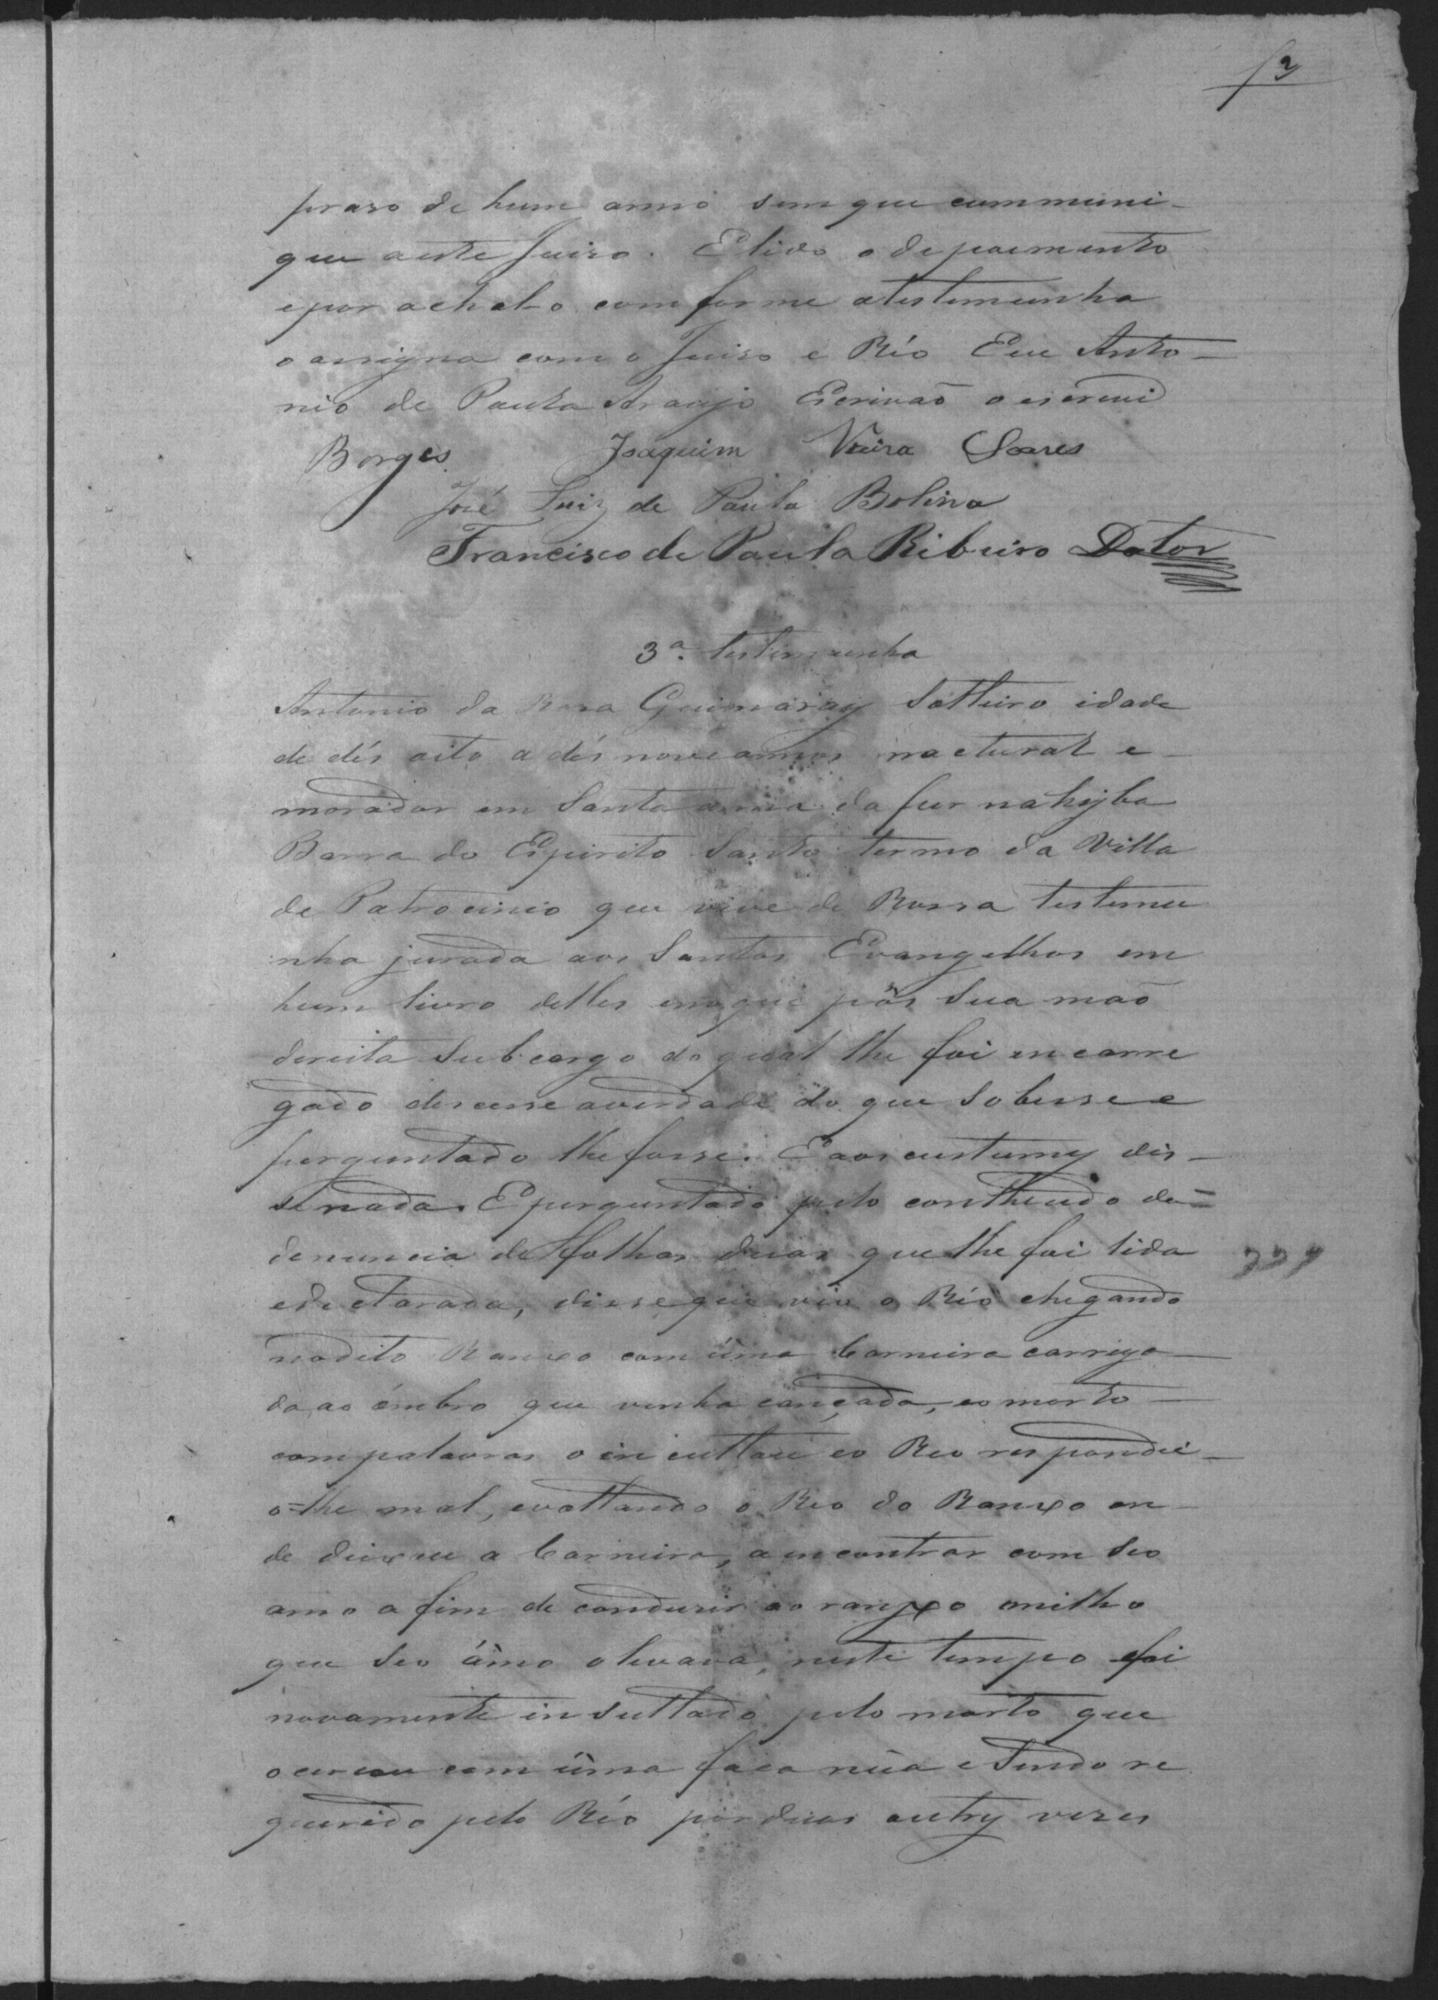 13
praso de hum anno sem que cummuni-
que a este Juiso. E lido o depoimento
e por achal-o comforme a testemunha
o assigna com o Juiso e Réo Eu Anto-
nio de Paula Araujo Escrivaõ o escrevi
Borges. Joaquim Vieira Soares
José Luiz de Paula Bolina
Francisco de Paula Ribeiro Dator
3ª. testemunha
Antonio da Roza Guimaraẽs Soltteiro idade
de dés oito a dés nove annos nactural e
morador em Santa anna da
Barra do Espirito Santo termo da Villa
de Patrocinio que vive de Rossa testemu
nha jurada aos Santos Evangelhos em
hum livro delles em que pôs sua maõ
direita sub cargo do qual lhe foi encarre
gado dissesse a verdade do que sobesse e
perguntado lhe fosse. E aos custumes dis-
se nada. E perguntado pelo contheudo da
denuncia de folhas duas que lhe foi lida
e declarada, disse que vio o Réo chegando
no dito Ranxo com uma Carneira carrega-
da ao ombro que vinha cançada, eo morto
com palavras o incultou eo Reo respondei-
o-lhe mal, evoltando o Reo do Ranxo on-
de deixou a Carneira, a encontrar com seo
amo a fim de condusir ao ranxo o milho
que seo âmo o levava, neste tempo foi
novamente insultado pelo morto que
o cercou com uma faca núa e sendo re
querido pelo Réo por duas outrs vezes